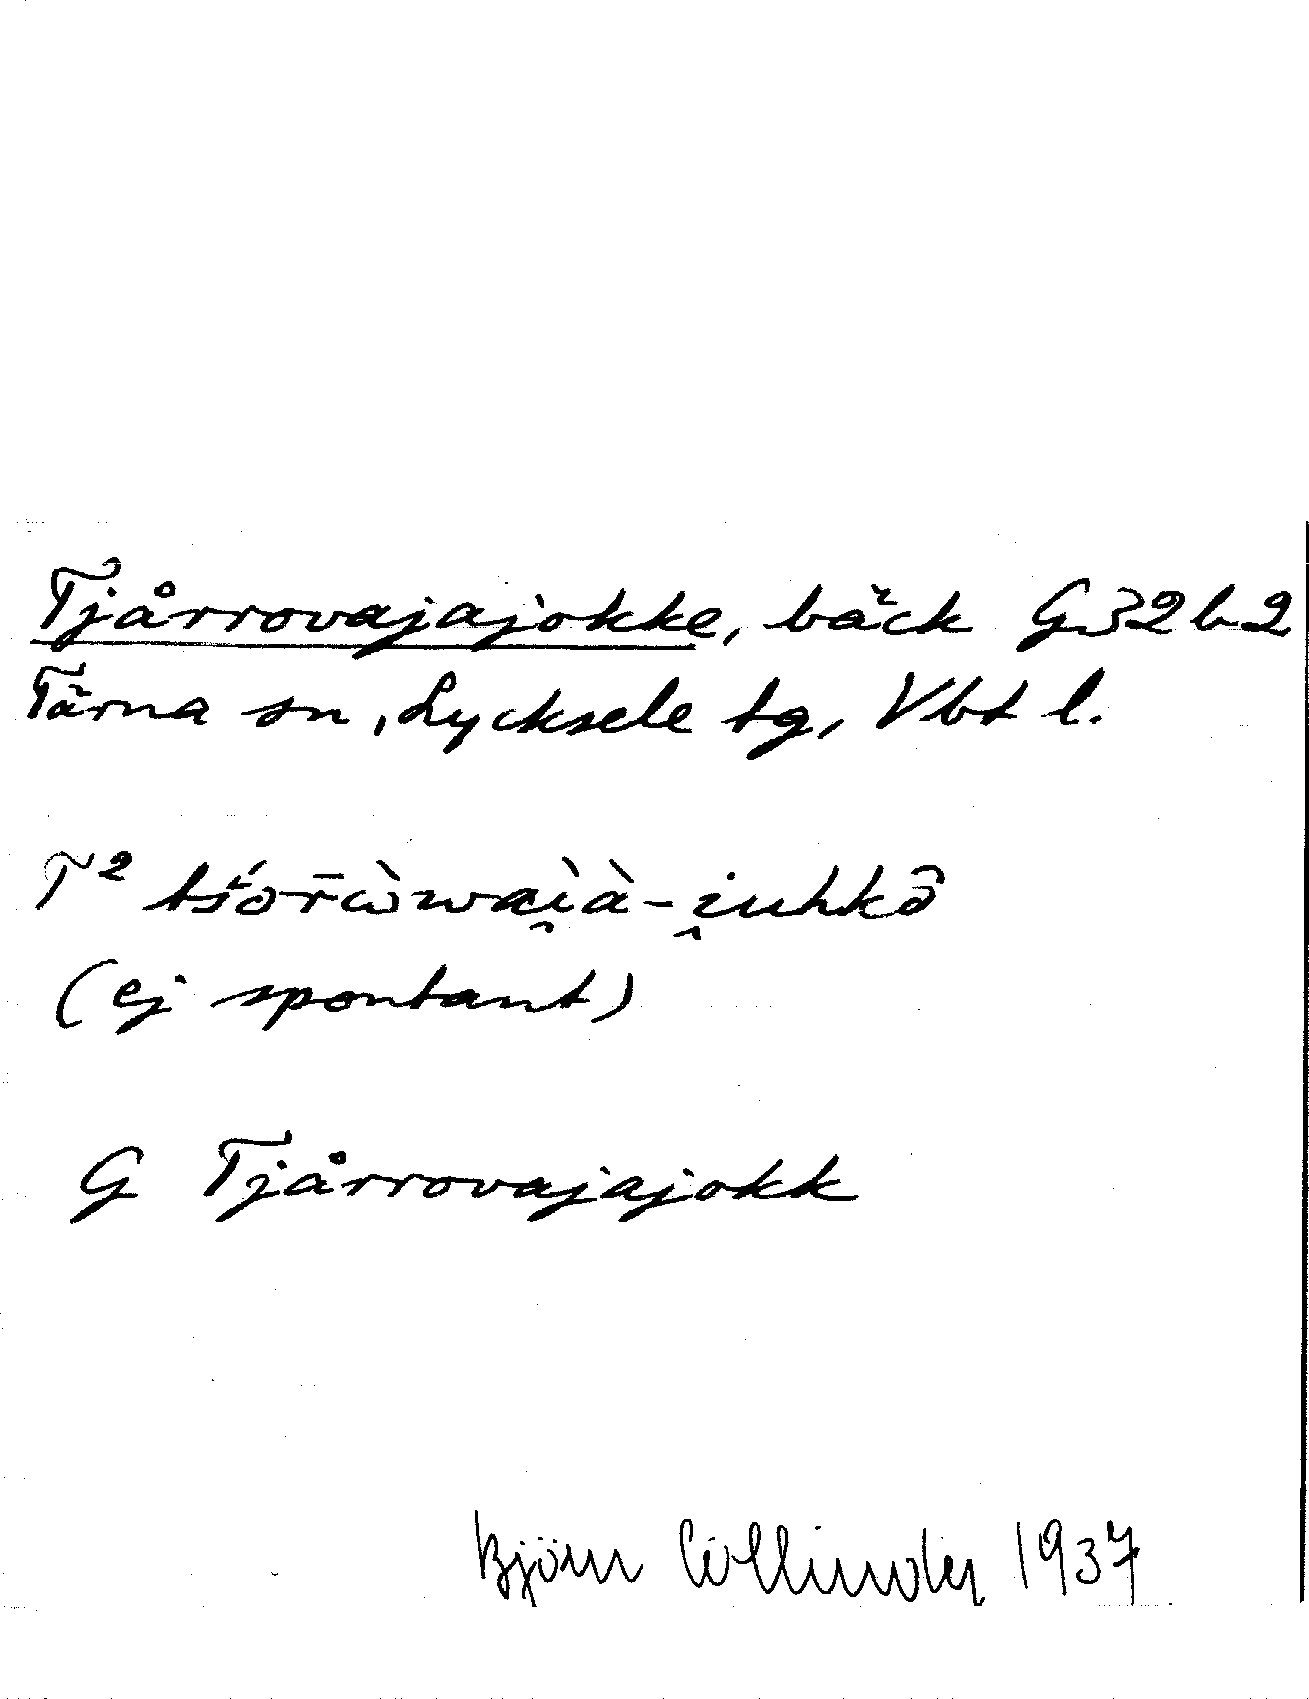 Tjårrovajajokke, bäck G32b2
Tärna sn, Lycksele tg, Vbt l.
T² tśo̅r̅ὼwaì̯à-i̯uhkô
(ej spontant)
G Tjårrovajajokk
Björn Collinder 1937